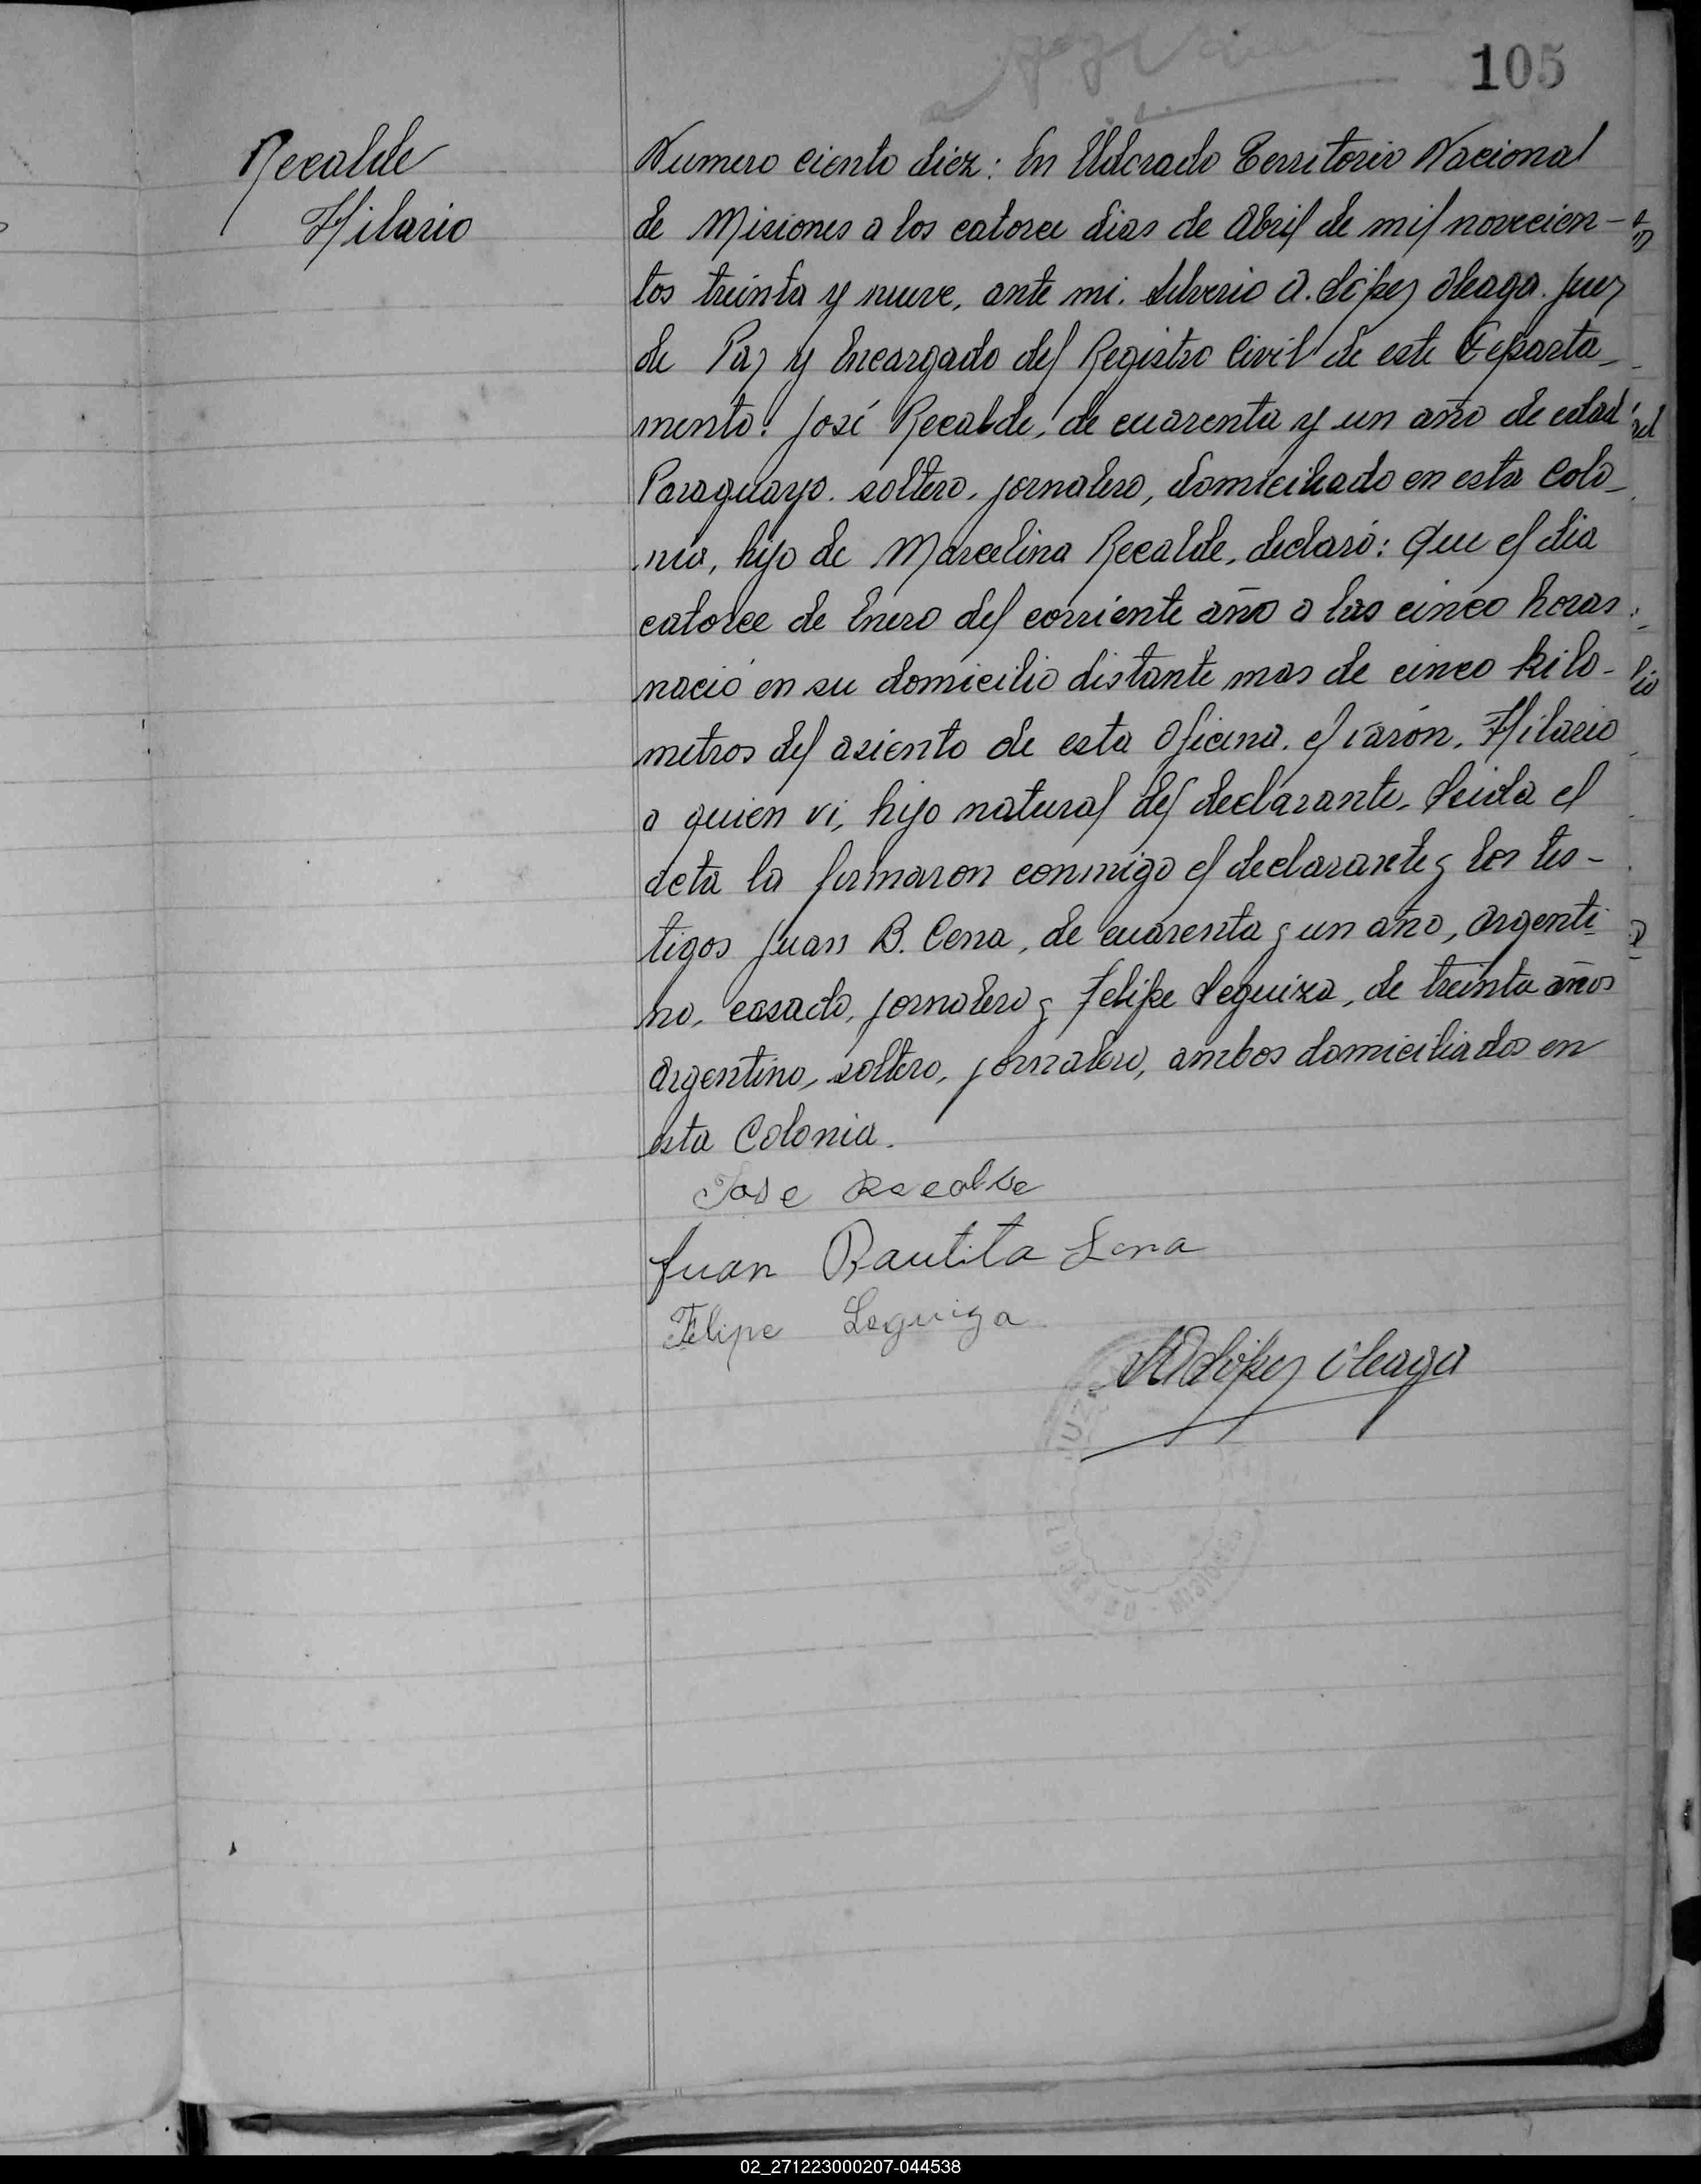 105
Recalde
Hilario
Numero ciento diez: En Eldorado Territorio Nacional
de Misiones a los catorce dias de Abril de mil novecien-
tos treinta y nueve, ante mi. Silverio A. López Aleaga. Juez
de Paz y Encargado del Registro Civil de este Departa-
mento: José Recalde, de cuarenta y un año de edad
Paraguayo. soltero, jornalero, domiciliado en esta Colo-
nia, hijo de Marcelina Recalde, declaró: Que el dia
catorce de Enero del corriente año a las cinco horas
nació en su domicilio distante mas de cinco kilo-
metros del asiento de esta Oficina. el varón, Hilario
a quien vi, hijo natural del declarante. Leida el
acta la firmaron conmigo el declarante y los tes-
tigos Juan B. Cena, de cuarenta y un año, Argenti-
no, casado, jornalero y Felipe Leguiza, de treinta años
Argentino, soltero, jornalero, ambos domiciliados en
esta Colonia.
Jose Recalde
Juan Bautita Sena
Felipe Leguiza
López Aleaga
02_271223000207-044538